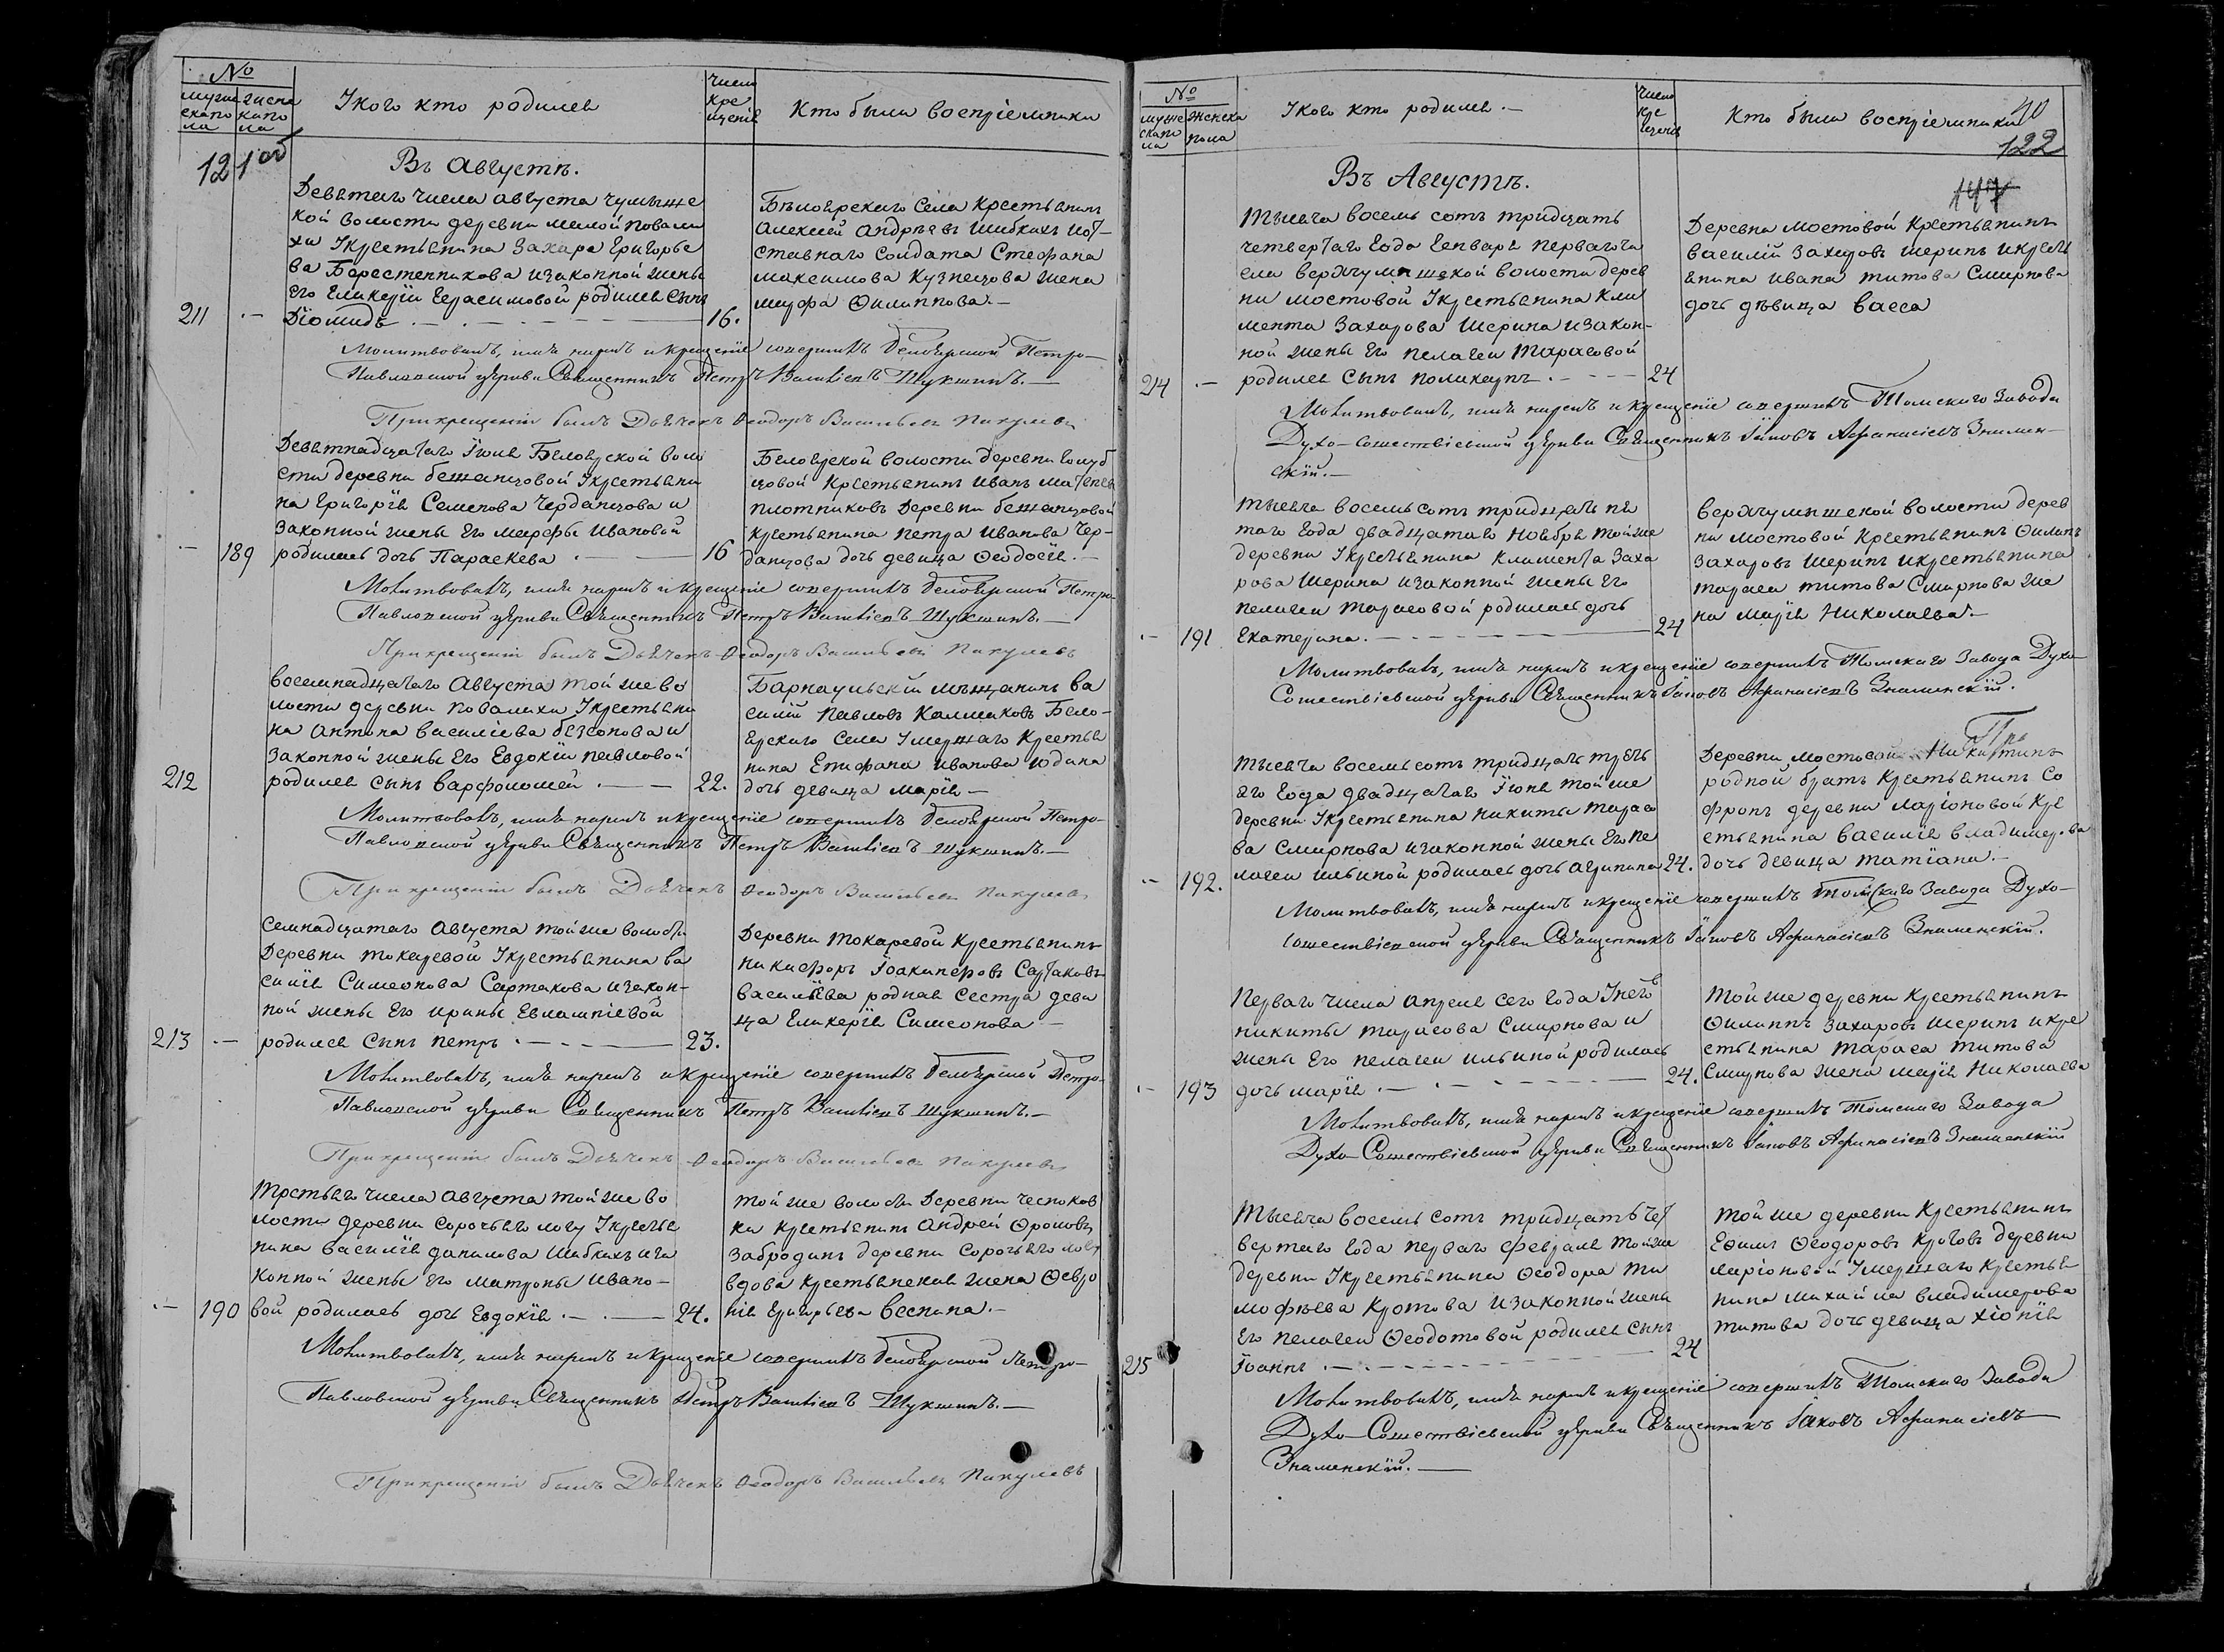 №
мужескаго пола
женскаго пола
У кого кто родился
Число крещенія
Кто были воспріемники
121 об
Въ Августѣ.
Девятаго числа августа чумышс
кой волости деревни малой повали
хи у крестьянина Захара Григорье
ва Берестенникова и законной жены
его Гликеріи Герасимовой родился сынъ
211 — Діомидъ — 16.
Бѣлоярскаго села крестьянинъ
Алексей Андрѣевъ Шибкихъ и от-
ставнаго солдата Стефана
максимова Кузнецова жена
марфа Филиппова. —
Молитвовалъ, имя нарекъ и крещеніе совершилъ белоярской Петро-
Павловской церкви Священникъ Петръ Васильевъ Шукшинъ. —
При крещеніи былъ Дьячекъ Ѳеодоръ Васильевъ Пикулевъ
Девятнадцатаго Іюня Белоярской воло
сти деревни бешенцовой у крестьяни
на Григорія Семенова Черданцова и
законной жены его марфы Ивановой
— 189 родилась дочь Параскева — 16
Белоярской волости деревни голуб
цовой Крестьянинъ Иванъ Матвеев
плотниковъ деревни бешенцовой
крестьянина Петра Иванова Чер-
данцова дочь девица Ѳеодосія. —
Молитвовалъ, имя нарекъ и крещеніе совершилъ белоярской Петро-
Павловской церкви Священникъ Петръ Васильевъ Шукшинъ. —
При крещеніи былъ Дьячекъ Ѳеодоръ Васильевъ Пикулевъ
восемнадцатаго Августа той же во
лости деревни повалихи у крестьяни
на Антона василіева безсонова и
законной жены его Евдокіи павловой
212 родился сынъ варфоломей — 22.
Барнаульскій мѣщанинъ ва
силій Павловъ Калмаковъ Бело-
ярскаго села умершаго крестья
нина Епифана иванова юдина
дочь девица марія —
Молитвовалъ, имя нарекъ и крещеніе совершилъ белоярской Петро-
Павловской церкви Священникъ Петръ Васильевъ Шукшинъ. —
При крещеніи былъ Дьячекъ Ѳеодоръ Васильевъ Пикулевъ
Семнадцатаго Августа той же волости
деревни токаревой у крестьянина ва
силія Симеонова Сартакова и закон-
ной жены его ирины Евлампіевой
213 — родился сынъ петръ — 23.
деревни токаревой крестьянинъ
никифоръ Сартаковъ
василіева родная сестра деви
ца Гликерія Симеонова —
Молитвовалъ, имя нарекъ и крещеніе совершилъ белоярской Петро-
Павловской церкви Священникъ Петръ Васильевъ Шукшинъ. —
При крещеніи былъ Дьячекъ Ѳеодоръ Васильевъ Пикулевъ
Третьяго числа Августа той же во
лости деревни сорочьяго логу у крестья
нина василія данилова Шибкихъ и за
конной жены его матроны ивано-
— 190 вой родилась дочь Евдокія — 24.
той же волости деревни чесноков
ки крестьянинъ Андрей Фроловъ
забродинъ деревни сорочьяго логу
вдова крестьянская жена Февро
нія Григорьева веснина. —
Молитвовалъ, имя нарекъ и крещеніе совершилъ белоярской Петро-
Павловской церкви Священникъ Петръ Васильевъ Шукшинъ. —
При крещеніи былъ Дьячекъ Ѳеодоръ Васильевъ Пикулевъ
№
мужескаго пола
женска пола
У кого кто родился. —
Число крещенія
Кто были воспріемники
40
122
147
Въ Августѣ.
тысяча восемь сотъ тридцать
четвертаго года Генваря перваго чи
сла верхчумышской волости дерев
ни мостовой у крестьянина Кли
мента Захарова Шерина и закон-
ной жены его пелагеи тарасовой
214 — родился сынъ поликарпъ. — 24
деревни мостовой крестьянинъ
василій Захаровъ Шеринъ и кресть
янина ивана титова Смирнова
дочь дѣвица васса
Молитвовалъ, имя нарекъ и крещеніе совершилъ Томскаго Завода
Духо-Сошествіевской церкви Священникъ Іаковъ Афанасіевъ Знамен-
скій. —
тысяча восемь сотъ тридцать пя
таго года двадцатаго Ноября той же
деревни у крестьянина климента Заха
рова Шерина и законной жены его
пелагеи тарасовой родилась дочь
— 191 Екатерина. — 24
верхчумышской волости дерев
ни мостовой крестьянинъ Филипъ
Захаровъ Шеринъ и крестьянина
тараса титова Смирнова же
на марія Николаева. —
Молитвовалъ, имя нарекъ и крещеніе совершилъ Томскаго Завода Духо-
Сошествіевской церкви Священникъ Іаковъ Афанасіевъ Знаменскій.
тысяча восемь сотъ тридцать треть
яго года двадцатаго Іюня той же
деревни у крестьянина никиты тарасо
ва Смирнова и законной жены его пе
— 192. лагеи ильиной родилась дочь агрипина 24.
деревни мостовой Никитинъ
родной братъ крестьянинъ Со
фронъ деревни ларіоновой кре
стьянина василія владимерова
дочь девица татіана. —
Молитвовалъ, имя нарекъ и крещеніе совершилъ Томскаго Завода Духо-
сошествіевской церкви Священникъ Іаковъ Афанасіевъ Знаменскій.
перваго числа апреля сего года у него
никиты тарасова Смирнова и
жены его пелагеи ильиной родилась
— 193 дочь марія — 24.
той же деревни крестьянинъ
Филиппъ Захаровъ Шеринъ и кре
стьянина тараса титова
Смирнова жена марія Николаева
Молитвовалъ, имя нарекъ и крещеніе совершилъ Томскаго Завода
Духо-Сошествіевской церкви Священникъ Іаковъ Афанасіевъ Знаменскій
тысяча восемь сотъ тридцать чет
вертаго года перваго февраля той же
деревни у крестьянина Ѳеодора ти
мофѣева Кротова и законной жены
его пелагеи Ѳеодотовой родился сынъ
215 Іоаннъ — 24
той же деревни крестьянинъ
Ефимъ Ѳеодоровъ Кротовъ деревни
ларіоновой умершаго крестья
нина михайла владимерова
титова дочь девица хіонія
Молитвовалъ, имя нарекъ и крещеніе совершилъ Томскаго Завода
Духо-Сошествіевской церкви Священникъ Іаковъ Афанасіевъ
Знаменскій. —